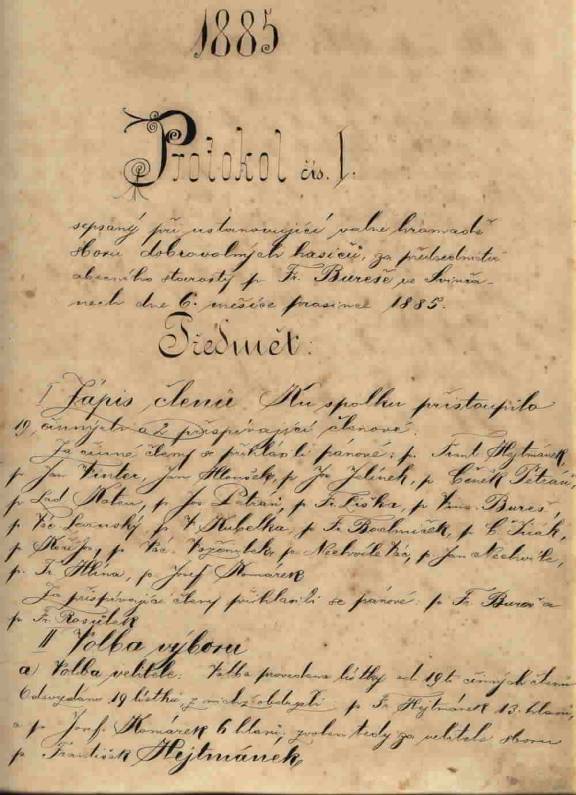 1885
Protokol čís. I.
sepsaný při ustanovující valné hromadě
sboru dobrovolných hasičů, za předsednictví
obecního starosty p. Fr. Bureše ve Svinča-
nech dne 6. měsíce prosince 1885.
Předmět:
I Zápis členů Ku spolku přistoupilo
19 činných a 2 přispívající členové.
Za činné členy se přihlásili pánové: p. Frant. Hejtmánek,
p. Jan Vinter, Jan Hloušek, p. Jos. Jelínek, p. Čeněk Petráň,
p. Lud. p. Jos. Petráň, p. Fr. Liška, p. Vinc. Bureš,
p. Vác. p. V. Kubelka, p. Fr. p. Č.
p. p. Vác. p. Nechvíle Vác., p. Jan Nechvíle,
p. Fr. Hlína, p. Josef Komárek
Za přispívající členy přihlásili se pánové: p. Fr. Bureš a
p. Fr.
II Volba výboru
a) Volba velitele: Volba provedena lístky od 19ti činných členů
Odevzdáno 19 lístků z nichž obdrželi p. Fr. Hejtmánek 13 hlasů,
a p. Josef Komárek 6 hlasů, zvolen tedy za velitele sboru
p. František Hejtmánek